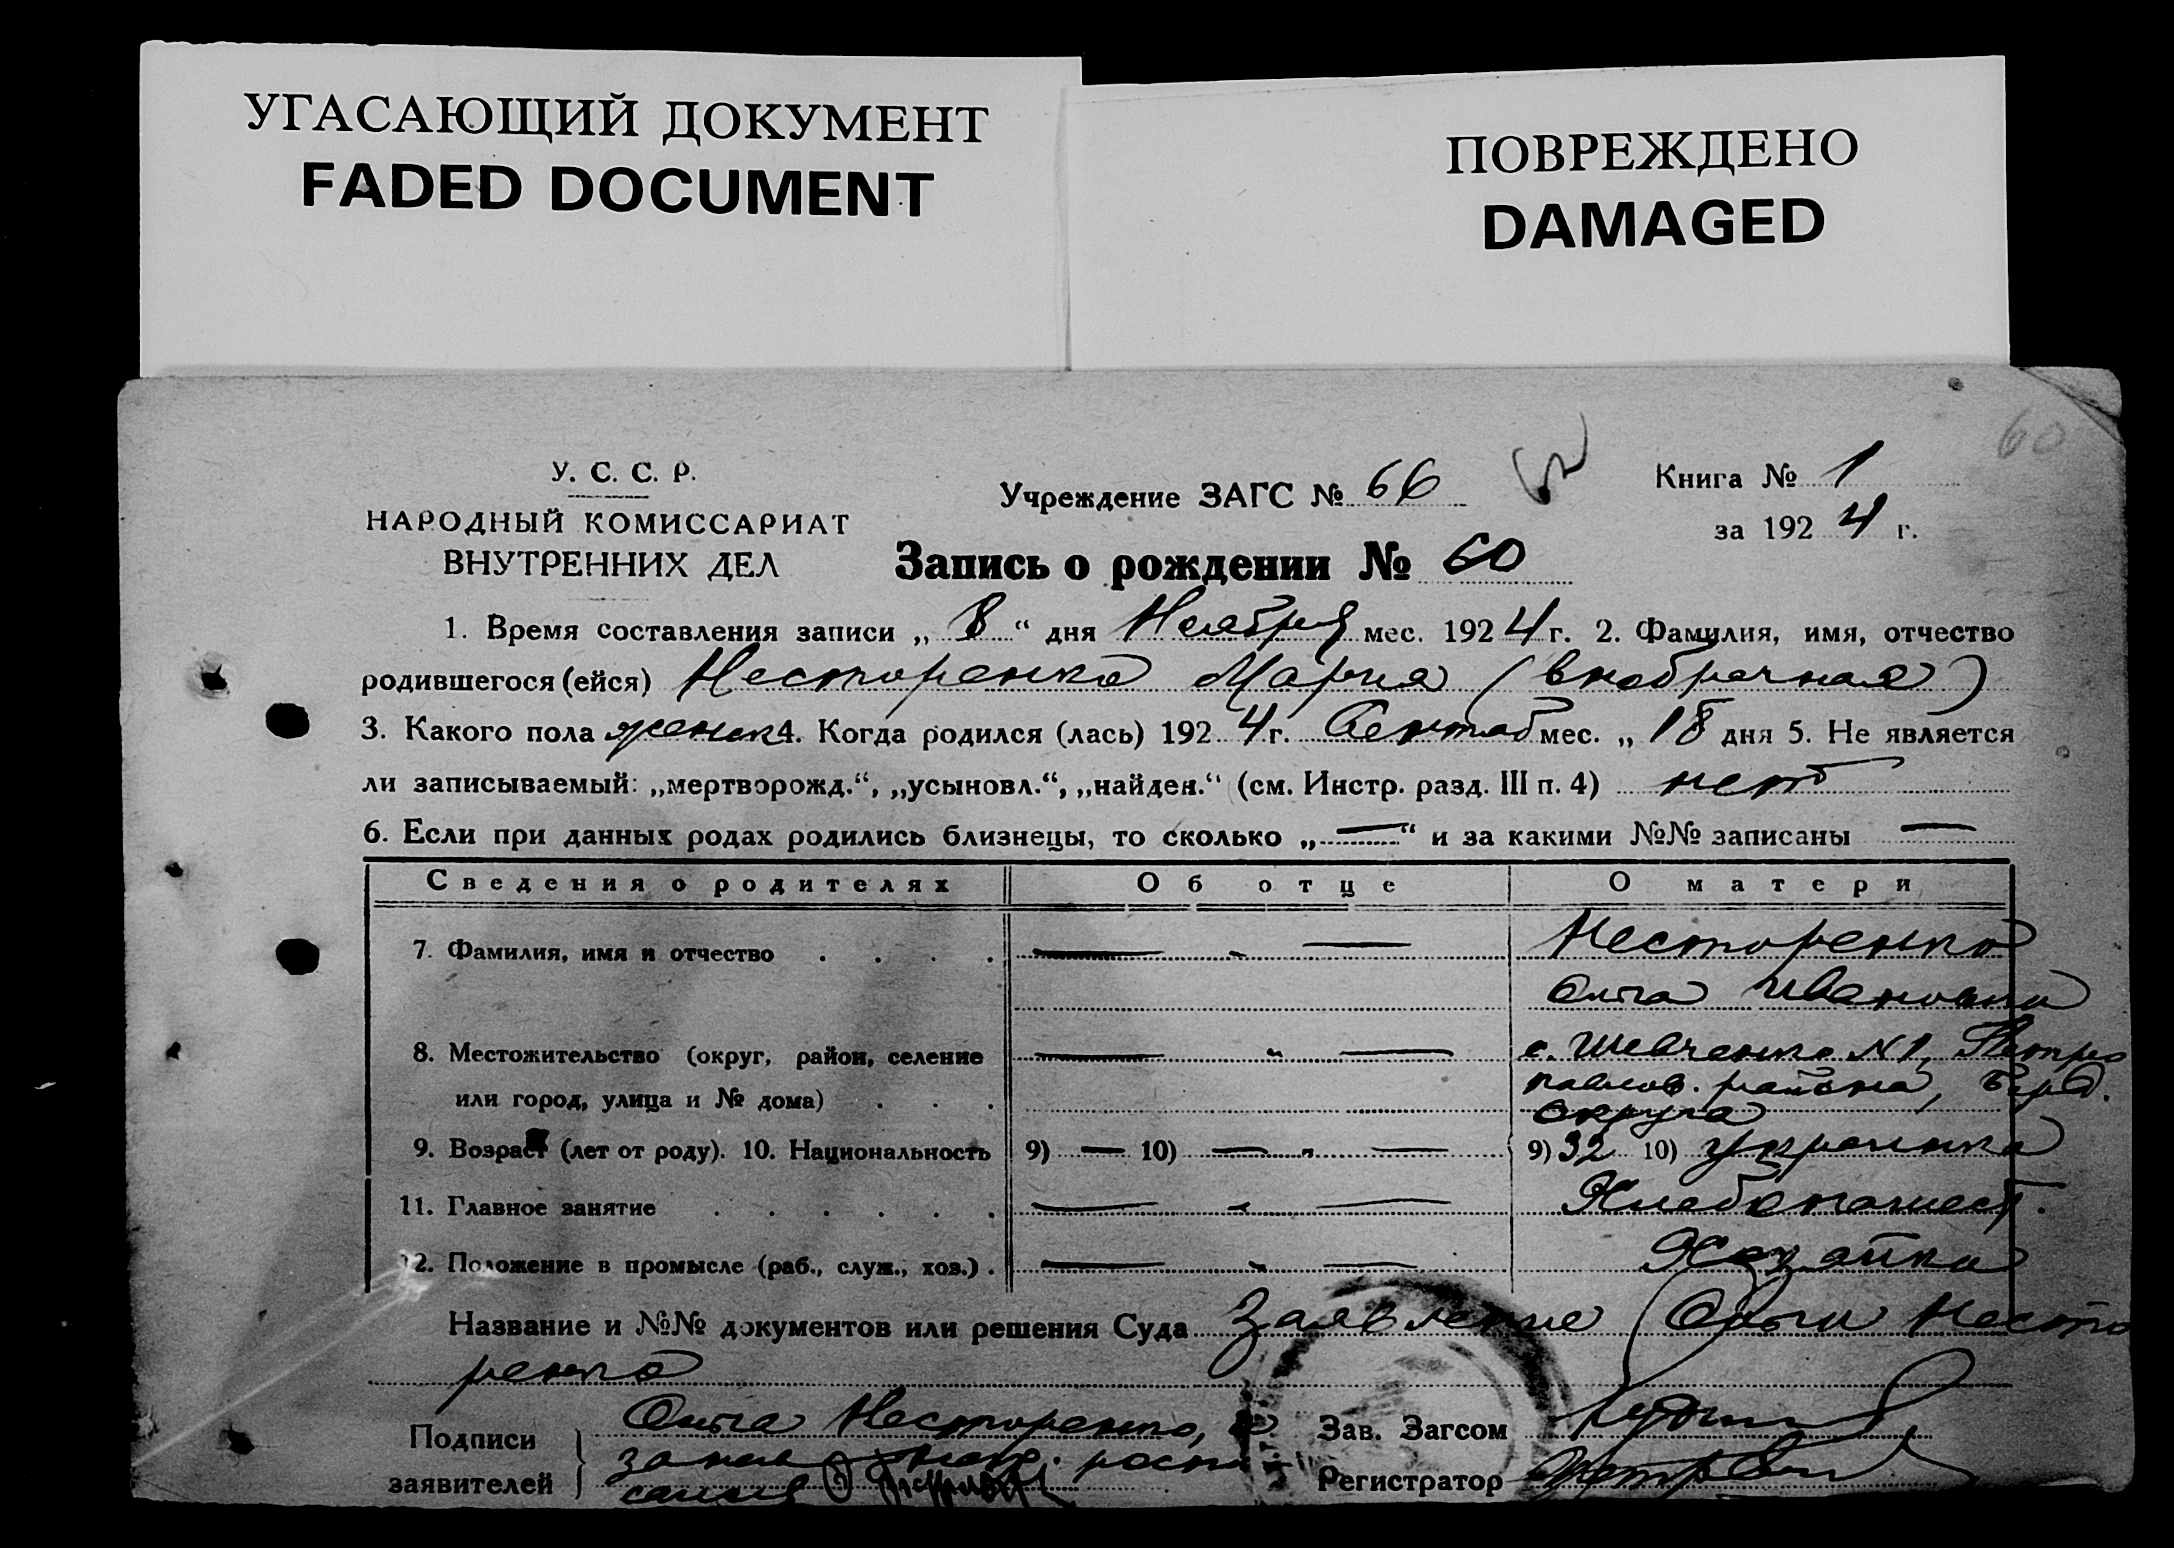 УГАСАЮЩИЙ ДОКУМЕНТ
FADED DOCUMENT
ПОВРЕЖДЕНО
DAMAGED
60
У. С. С. Р.
НАРОДНЫЙ КОМИССАРИАТ
ВНУТРЕННИХ ДЕЛ
Учреждение ЗАГС № 66
62
Книга № 1
за 1924 г.
Запись о рождении № 60
1. Время составления записи „8“ дня Ноября мес. 1924 г. 2. Фамилия, имя, отчество
родившегося (ейся) Несторенко Мария (внебрачная)
3. Какого пола женск 4. Когда родился (лась) 1924 г. Сентяб мес. „18 дня 5. Не является
ли записываемый: „мертворожд.“, „усыновл.“, „найден.“ (см. Инстр. разд. III п. 4) нет
6. Если при данных родах родились близнецы, то сколько „—“ и за какими №№ записаны —
Сведения о родителях Об отце О матери
7. Фамилия, имя и отчество . . . . — „ — Несторенко
Ольга Ивановна
8. Местожительство (округ, район, селение — „ — с. Шевченко №1, Петро
или город, улица и № дома) . . . павлов. района, Берд.
округа
9. Возраст (лет от роду). 10. Национальность 9) — 10) — „ — 9) 32 10) украинка
11. Главное занятие . . . . . . — „ — Хлебопашест.
12. Положение в промысле (раб., служ., хоз.) . — „ — Хозяйка
Название и №№ документов или решения Суда Заявление Ольги Несто
ренко
Подписи
заявителей
Ольга Несторенко,
Зав. Загсом
Регистратор